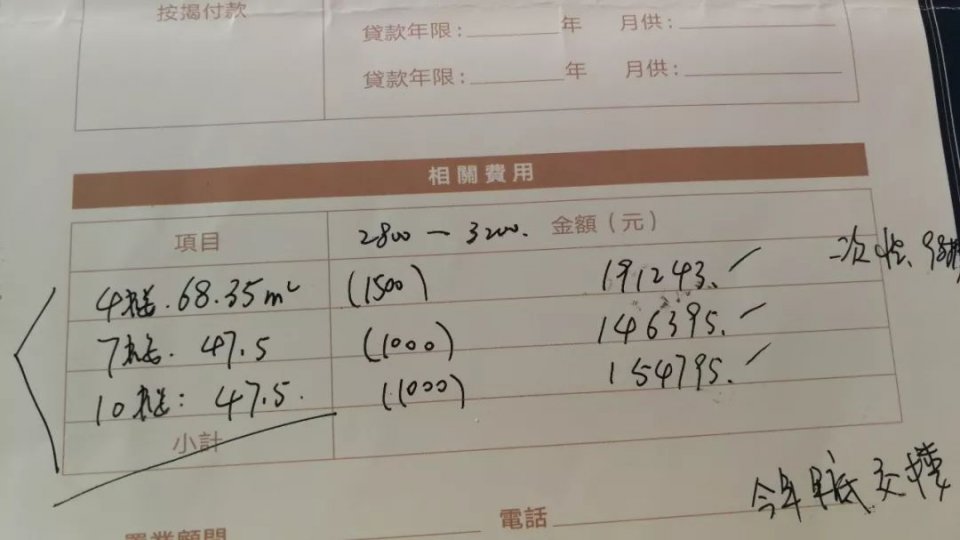 按揭付款
貸款年限：年 月供：
貸款年限：年 月供：
相關費用
項目 2800 — 3200. 金額（元）
4楼. 68.35m² (1500) 191243.
7楼. 47.5 (1000) 146395.
10楼: 47.5. (1000) 154795.
小計
一次性、98折
今年年底交楼
置業顧問 電話